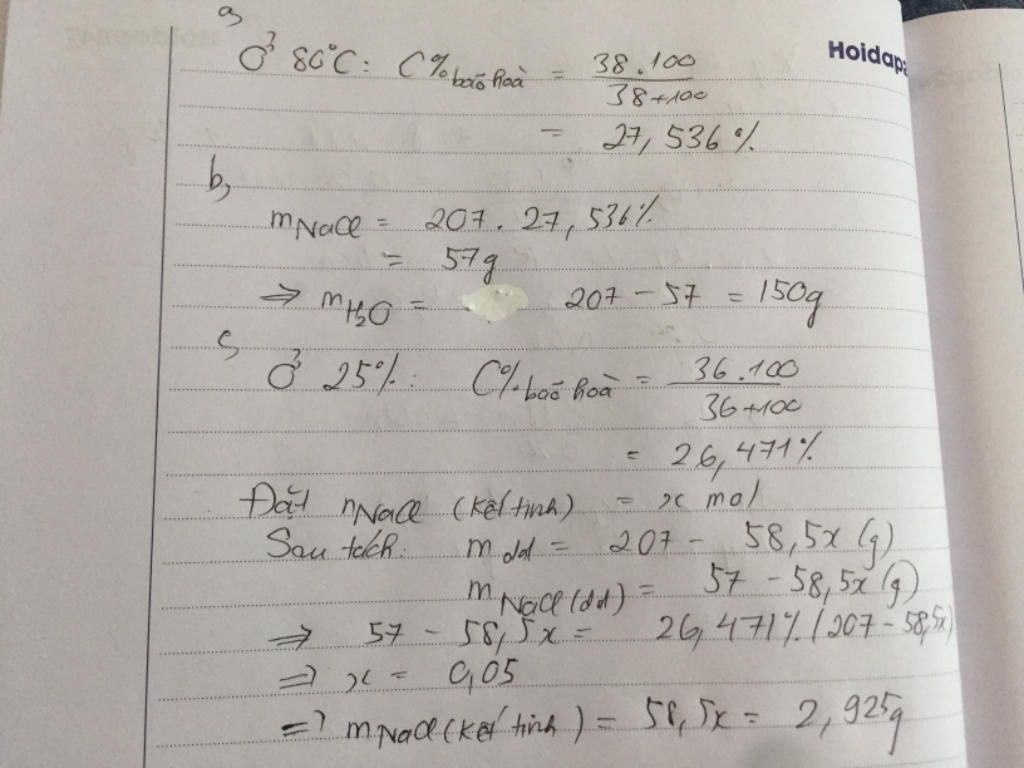 a,
Hoidap
Ở 80°C: C% bão hoà = 38.100 / 38+100
= 27,536%
b,
mNaCl = 207. 27,536%
= 57g
⇒ mH₂O = 207 - 57 = 150g
c,
Ở 25%: C% bão hoà = 36.100 / 36+100
= 26,471%
Đặt nNaCl (kết tinh) = x mol
Sau tách: mdd = 207 - 58,5x (g)
mNaCl(dd) = 57 - 58,5x (g)
⇒ 57 - 58,5x = 26,471% (207 - 58,5x)
⇒ x = 0,05
⇒ mNaCl (kết tinh) = 58,5x = 2,925g